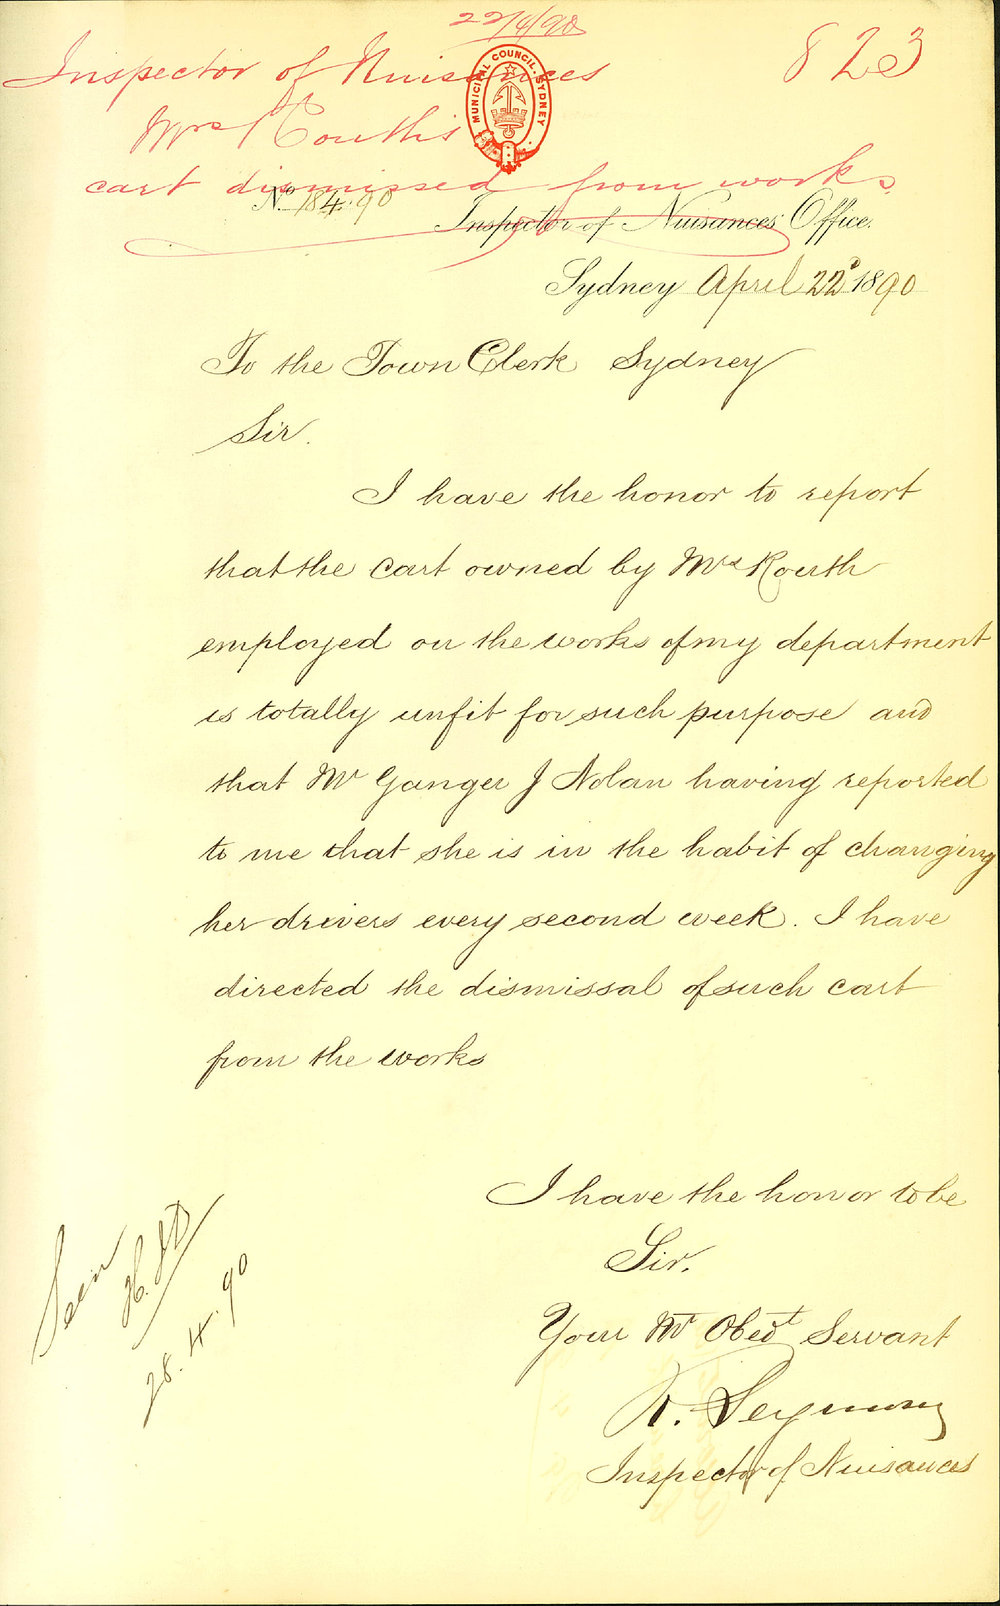 22/4/90
823
Inspector of Nuisances
MUNICIPAL COUNCIL. SYDNEY
Mrs Couth's
cart dismissed from works
No. 184.90
Inspector of Nuisances Office.
Sydney April 22d 1890
To the Town Clerk Sydney
Sir.
I have the honor to report
that the cart owned by Mrs Routh
employed on the works of my department
is totally unfit for such purpose and
that Mr Ganger J Nolan having reported
to me that she is in the habit of changing
her drivers every second week. I have
directed the dismissal of such cart
from the works
I have the honor to be
Sir.
Your Mt Obedt Servant
R. Seymour
Inspector of Nuisances
Seen
28.4.90